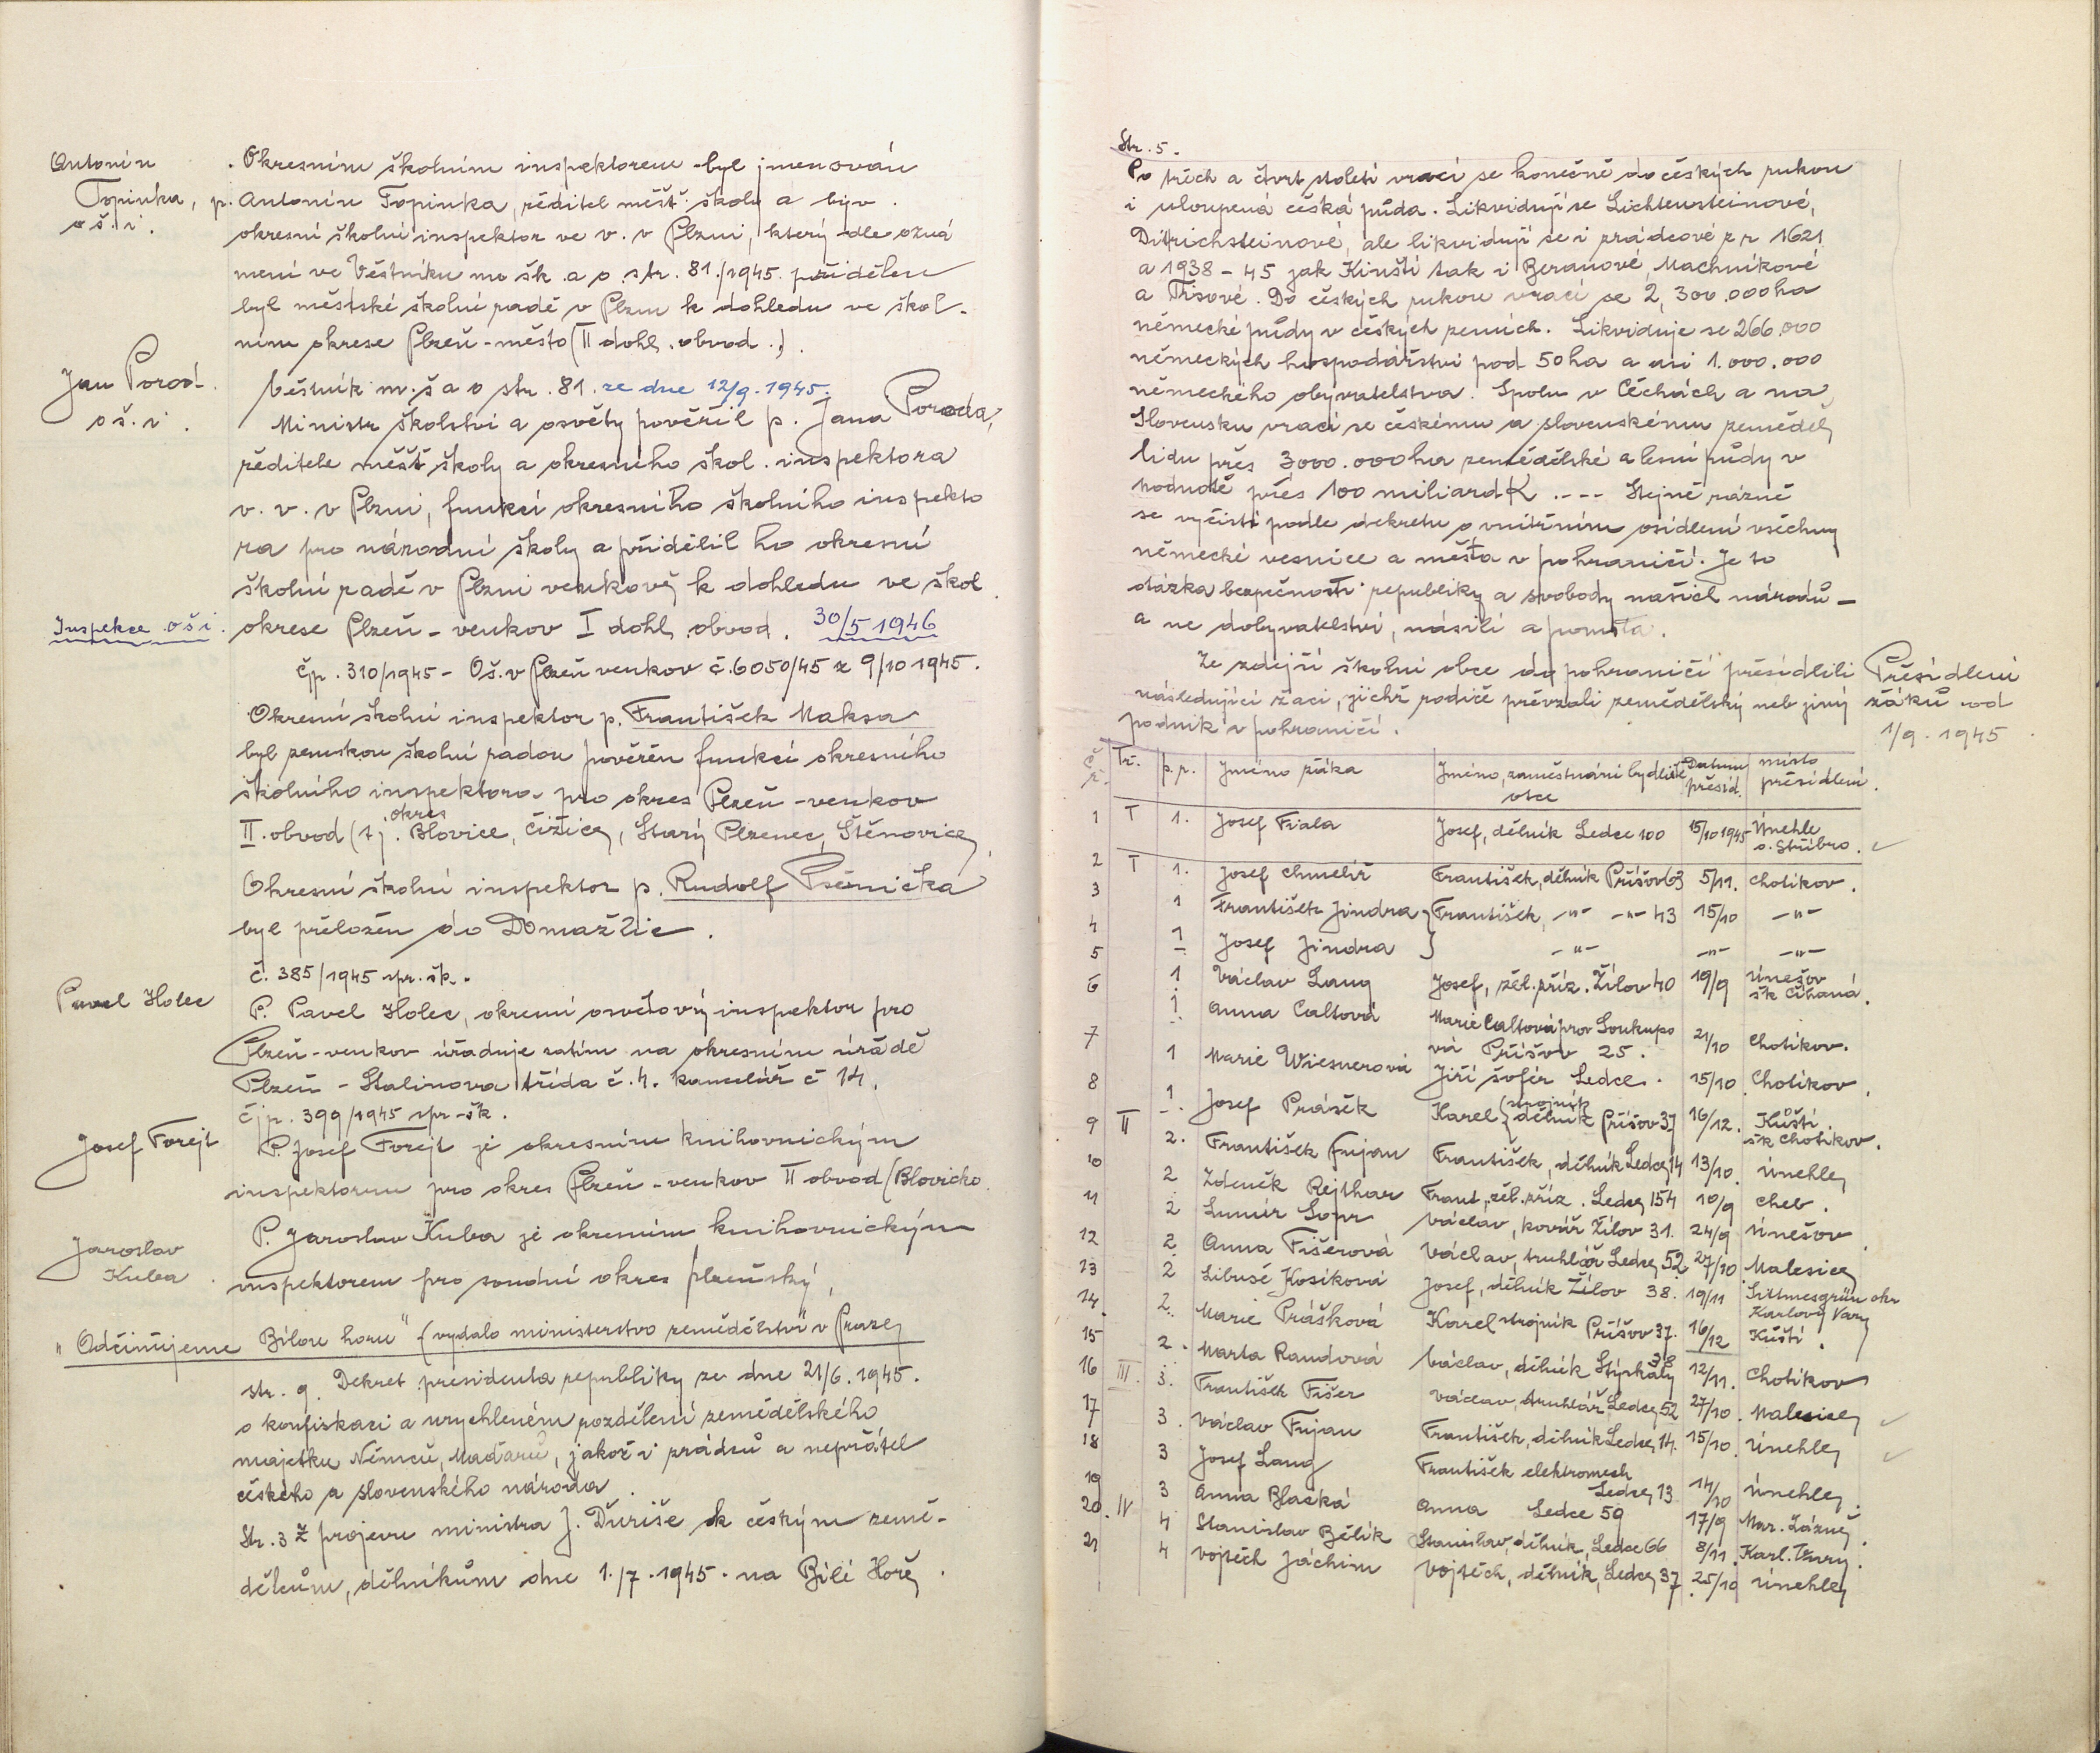 Antonín
Topinka,
oš. i.
Okresním školním inspektorem byl jmenován
p. Antonín Topinka, ředitel měšť. školy a býv.
okresní školní inspektor ve v. v Plzni, který dle ozná
mení ve Věstníku mo šk. a o. str. 81./1945. přidělen
byl městské školní radě v Plzni k dohledu ve škol-
ním okrese Plzeň-město (II dohl. obvod.).
Jan Porod.
oš. i.
Věstník m. š a o str. 81. ze dne 12/9. 1945.
Ministr školství a osvěty pověřil p. Jana Poroda,
ředitele měšť školy a okresního škol. inspektora
v. v. v Plzni, funkcí okresního školního inspekto
ra pro národní školy a přidělil ho okresní
školní radě v Plzni venkově k dohledu ve škol.
Inspekce oši.
okrese Plzeň-venkov I dohl. obvod. 30/5 1946
Čp. 310/1945 - Oš. v Plzeň venkov č. 6050/45 z 9/10 1945.
Okresní školní inspektor p. František Maksa
byl zemskou školní radou pověřen funkcí okresního
školního inspektora pro okres Plzeň-venkov
II. obvod (tj. okres Blovice, Čižice, Starý Plzenec, Štěnovice,
Okresní školní inspektor p. Rudolf Pšenička
byl přeložen do Domažlic.
č. 385/1945 spr. šk.
Pavel Holec
P. Pavel Holec, okresní osvětový inspektor pro
Plzeň-venkov úřaduje zatím na okresním úřadě
Plzeň - Stalinova třída č. 4. kancelář č 14.
čjp. 399/1945 spr-šk.
Josef Forejt
P. Josef Forejt je okresním knihovnickým
inspektorem pro okres Plzeň-venkov II obvod (Blovicko.
Jaroslav
Kuba.
P. Jaroslav Kuba je okresním knihovnickým
inspektorem pro soudní okres plzeňský,
"Odčiňujeme Bílou horu" (vydalo ministerstvo zemědělství v Praze)
str. 9. Dekret presidenta republiky ze dne 21/6. 1945.
o konfiskaci a urychleném rozdělení zemědělského
majetku Němců, Maďarů, jakož i zrádců a nepřátel
českého a slovenského národa.
Str. 3 Z projevu ministra J. Ďuriše k českým země-
dělcům, dělníkům dne 1./7. 1945. na Bílé Hoře.
Str. 5.
Po třech a čtvrt století vrací se konečně do českých rukou
i uloupená česká půda. Likvidují se Lichtensteinové,
Ditrichsteinové, ale likvidují se i zrádcové z r 1621
a 1938 - 45 jak Kinští tak i Beranové, Machníkové
a Tisové. Do českých rukou vrací se 2,300.000 ha
německé půdy v českých zemích. Likviduje se 266.000
německých hospodářství pod 50 ha a asi 1.000.000
německého obyvatelstva. Spolu v Čechách a na
Slovensku vrací se českému a slovenskému zeměděl.
lidu přes 3,000.000 ha zemědělské a lesní půdy v
hodnotě přes 100 miliard K .--- Stejně rázně
se vyčistí podle dekretu o vnitřním osídlení všechny
německé vesnice a města v pohraničí. Je to
otázka bezpečnosti republiky a svobody našich národů -
a ne dobyvatelství, násilí a pomsta.
Ze zdejší školní obce do pohraničí přesídlili
následující žáci, jichž rodiče převzali zemědělský neb jiný
podnik v pohraničí.
Přesídlení
žáků od
1/9. 1945
č. ř. Tř. p. r. Jméno žáka Jméno, zaměstnání bydliště otce Datum přesíd. místo přesídlení.
1 I 1. Josef Fiala Josef, dělník Ledce 100 15/10 1945 Únehle o. Stříbro.
2 I 1. Josef Chmelíř František, dělník Příšov 63 5/11. Chotíkov.
3 1 František Jindra } František, -"- -"- 43 15/10 -"-
4 1 Josef Jindra } -"- -"- -"-
5 1 Václav Lang Josef, žel. příz. Žilov 40 19/9 Únešov šk Čihaná.
6 1. Anna Caltová Marie Caltová prov Soukupo
vá Příšov 25. 21/10 Chotíkov.
7 1 Marie Wiesnerová Jiří šofér Ledce. 15/10 Chotíkov.
8 1. Josef Prášek Karel (strojník dělník Příšov 37 16/12. Kůští. šk Chotíkov.
9 II 2. František Fujan František, dělník Ledce 14 13/10. Únehle
10 2 Zdeněk Rejthar Frant, žel. příz. Ledce 154 10/9 Cheb.
11 2 Lumír Sopr Václav, kovář Žilov 31. 24/9 Únešov.
12 2 Anna Fišerová Václav, truhlář Ledce 52 27/10 Malesice
13 2 Libuše Kosíková Josef, dělník Žilov 38. 19/11 Sittmesgrün okr Karlovy Vary
14. 2. Marie Prášková Karel strojník Příšov 37. 16/12 Kůští.
15 2. Marta Raudová Václav, dělník Stýskaly 38 12/11. Chotíkov
16 III. 3. František Fišer Václav, truhlář Ledce 52 27/10. Malesice
17 3. Václav Fujan František, dělník Ledce 14. 15/10. Únehle
18 3 Josef Lang František elektromech Ledce 13 14/10 Únehle.
19 3 Anna Blacká Anna Ledce 59 17/9 Mar. Lázně.
20. IV 4 Stanislav Bělík Stanislav, dělník, Ledce 66 8/11. Karl. Vary.
21 4 Vojtěch Jáchim Vojtěch, dělník, Ledce 37 25/10 Únehle